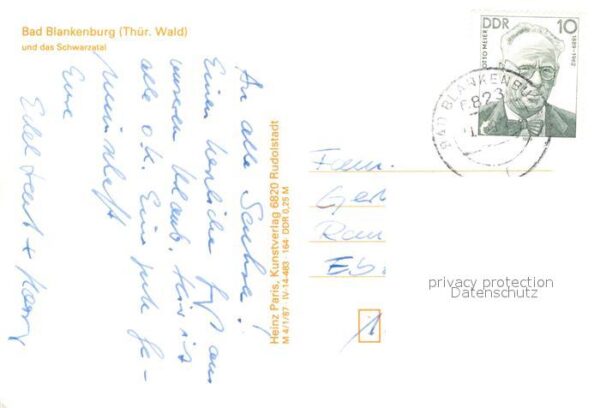 Bad Blankenburg (Thür. Wald)
und das Schwarzatal
An alle Sachse!
Einen herzliche aus
unseren Urlaub. Hier ist
alle o.k. Eine gute Ge-
meinschaft
Eure
Heinz Paris, Kunstverlag 6820 Rudolstadt
M 4/1/87 IV-14-483 · 164 · DDR 0,25 M
DDR 10
OTTO MEIER 1889-1962
BAD BLANKENBU
6823
Fam.
Ger
Rau
Eb.
1
privacy protection
Datenschutz